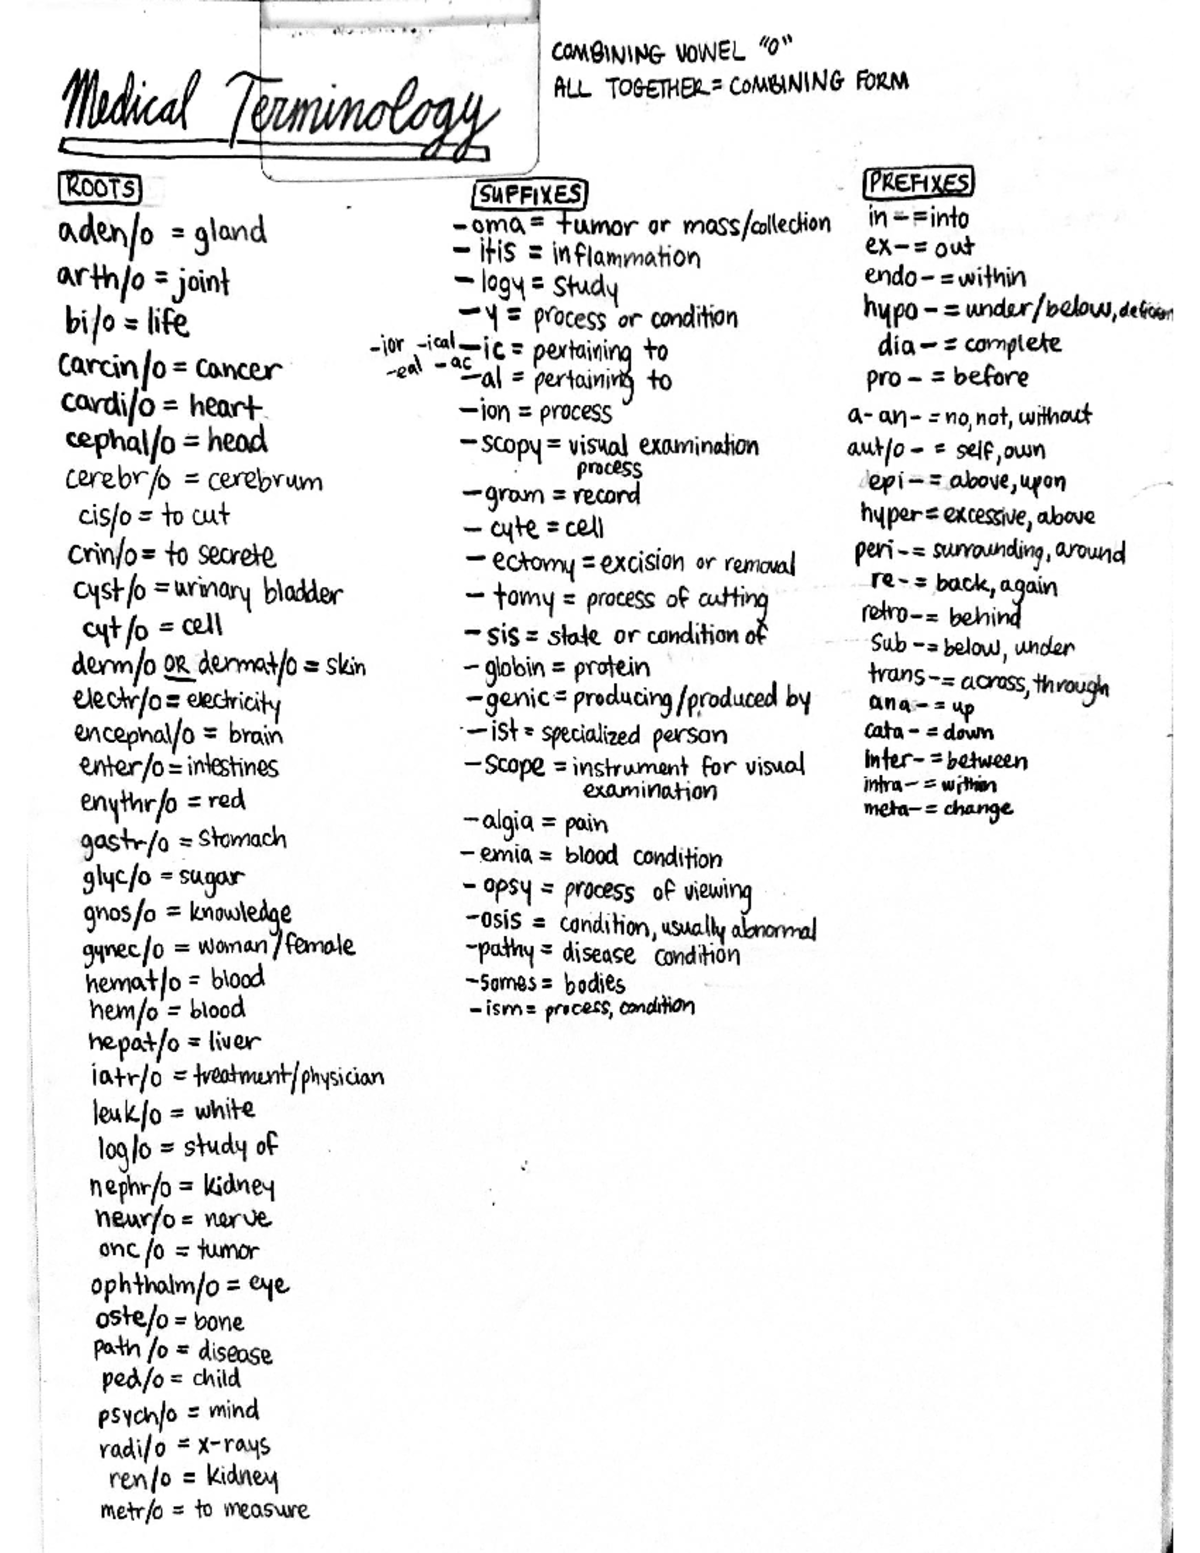 COMBINING VOWEL "O"
ALL TOGETHER = COMBINING FORM
Medical Terminology
ROOTS
aden/o = gland
arth/o = joint
bi/o = life
carcin/o = cancer
cardi/o = heart
cephal/o = head
cerebr/o = cerebrum
cis/o = to cut
crin/o = to secrete
cyst/o = urinary bladder
cyt/o = cell
derm/o OR dermat/o = skin
electr/o = electricity
encephal/o = brain
enter/o = intestines
enythr/o = red
gastr/o = stomach
glyc/o = sugar
gnos/o = knowledge
gynec/o = woman/female
hemat/o = blood
hem/o = blood
hepat/o = liver
iatr/o = treatment/physician
leuk/o = white
log/o = study of
nephr/o = kidney
neur/o = nerve
onc/o = tumor
ophthalm/o = eye
oste/o = bone
path/o = disease
ped/o = child
psych/o = mind
radi/o = x-rays
ren/o = kidney
metr/o = to measure
SUFFIXES
-oma = tumor or mass/collection
- itis = inflammation
- logy = study
- y = process or condition
-ior -ical -ic = pertaining to
-eal -ac -al = pertaining to
-ion = process
-scopy = visual examination
process
-gram = record
- cyte = cell
- ectomy = excision or removal
- tomy = process of cutting
- sis = state or condition of
- globin = protein
-genic = producing/produced by
- ist = specialized person
-scope = instrument for visual
examination
-algia = pain
- emia = blood condition
- opsy = process of viewing
-osis = condition, usually abnormal
-pathy = disease condition
-somes = bodies
- ism = process, condition
PREFIXES
in - = into
ex - = out
endo - = within
hypo - = under/below,
dia - = complete
pro - = before
a- an- = no, not, without
aut/o - = self, own
epi - = above, upon
hyper = excessive, above
peri - = surrounding, around
re - = back, again
retro - = behind
sub - = below, under
trans - = across, through
ana - = up
cata - = down
inter - = between
intra - = within
meta - = change